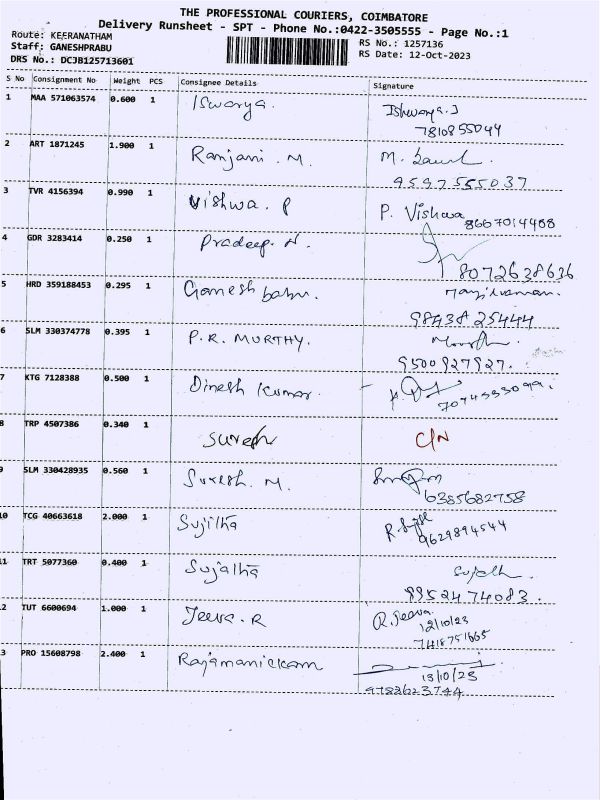 THE PROFESSIONAL COURIERS, COIMBATORE
Delivery Runsheet - SPT - Phone No.:0422-3505555 - Page No.:1
Route: KEERANATHAM
Staff: GANESHPRABU
DRS No.: DCJB125713601
RS No.: 1257136
RS Date: 12-Oct-2023
S No Consignment No Weight PCS Consignee Details Signature
1 MAA 571063574 0.600 1 Iswarya. Ishwarya.J
7810855044
2 ART 1871245 1.900 1 Ranjani . M. M.
9597555037
3 TVR 4156394 0.990 1 Vishwa . P P. Vishwa
8667014488
4 GDR 3283414 0.250 1 Pradeep. N.
8072638636
5 HRD 359188453 0.295 1 Ganesh babu.
98438 25444
6 SLM 330374778 0.395 1 P.R. MURTHY.
9500927927.
7 KTG 7128388 0.500 1 Dinesh Kumar.
7 TRP 4507386 0.340 1 Suresh C/N
9 SLM 330428935 0.560 1 Suresh. M.
6385682758
10 TCG 40663618 2.000 1 Sujitha
9629894544
11 TRT 5077360 0.400 1 Sujatha
8952474083.
2 TUT 6600694 1.000 1 Jeeva. R R. Jeeva.
12/10/23
7418751665
3 PRO 15608798 2.400 1 Rajamanickam
13/10/23
9788623744